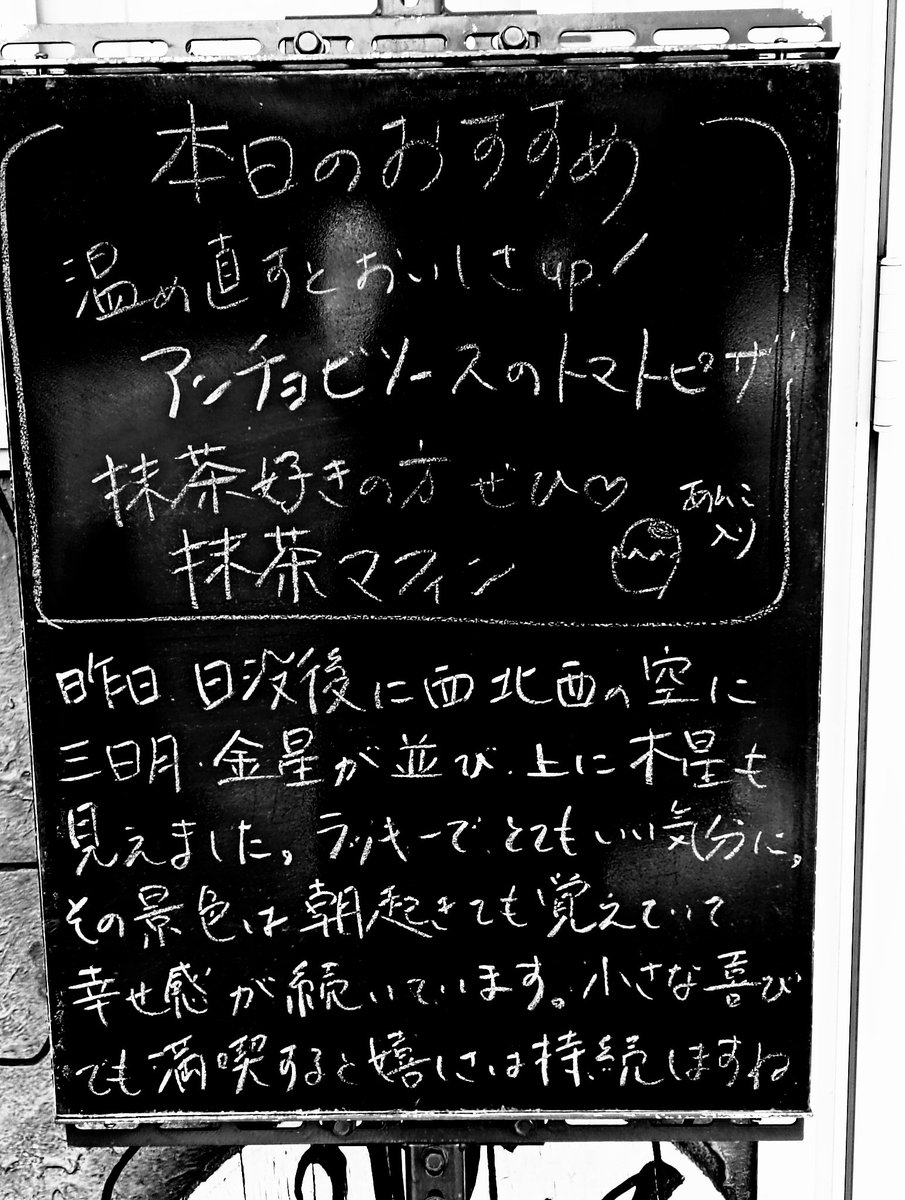 本日のおすすめ
温め直すとおいしさup!
アンチョビソースのトマトピザ
抹茶好きの方 ぜひ♡
抹茶マフィン
あんこ
入り
昨日、日没後に西北西の空に
三日月、金星が並び、上に木星も
見えました。ラッキーで、とてもいい気分に。
その景色は朝起きても覚えていて
幸せ感が続いています。小さな喜び
でも満喫すると嬉しさは持続しますね